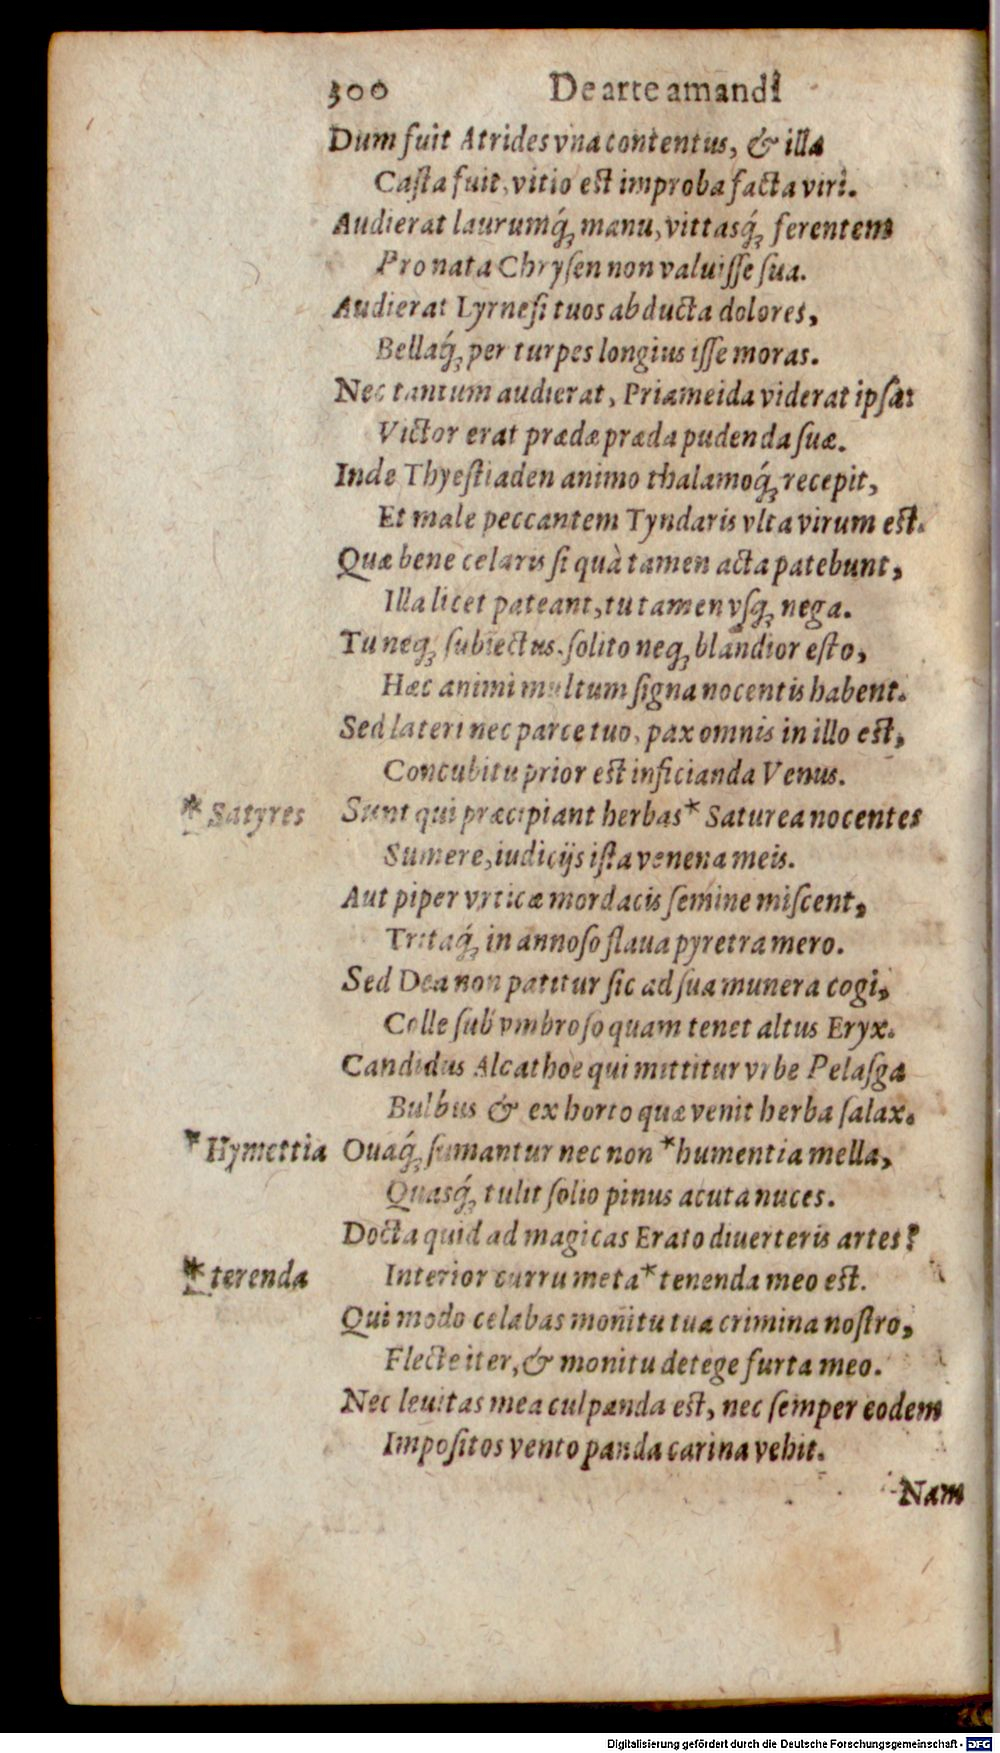 300 De arte amandi
Dum fuit Atrides vna contentus, & illa
Casta fuit, vitio est improba facta viri.
Audierat laurumq́; manu, vittasq́; ferentem
Pro nata Chrysen non valuisse sua.
Audierat Lyrnesi tuos abducta dolores,
Bellaq́; per turpes longius isse moras.
Nec tantum audierat, Priameida viderat ipsa:
Victor erat prædæ præda pudenda suæ.
Inde Thyestiaden animo thalamoq́; recepit,
Et male peccantem Tyndaris vlta virum est.
Quæ bene celaris si quà tamen acta patebunt,
Illa licet pateant, tu tamen vsq; nega.
Tu neq; subiectus, solito neq; blandior esto,
Hæc animi multum signa nocentis habent.
Sed lateri nec parce tuo, pax omnis in illo est,
Concubitu prior est inficianda Venus.
* Satyres Sunt qui præcipiant herbas * Saturea nocentes
Sumere, iudicijs ista venena meis.
Aut piper vrticæ mordacis semine miscent,
Tritaq́; in annoso flaua pyretra mero.
Sed Dea non patitur sic ad sua munera cogi,
Colle sub vmbroso quam tenet altus Eryx.
Candidus Alcathoe qui mittitur vrbe Pelasga
Bulbus & ex horto quæ venit herba salax.
* Hymettia Ouaq́; sumantur nec non * humentia mella,
Quasq́; tulit folio pinus acuta nuces.
Docta quid ad magicas Erato diuerteris artes?
* terenda Interior curru meta * tenenda meo est.
Qui modo celabas monitu tua crimina nostro,
Flecte iter, & monitu detege furta meo.
Nec leuitas mea culpanda est, nec semper eodem
Impositos vento panda carina vehit.
Nam
Digitalisierung gefördert durch die Deutsche Forschungsgemeinschaft - DFG